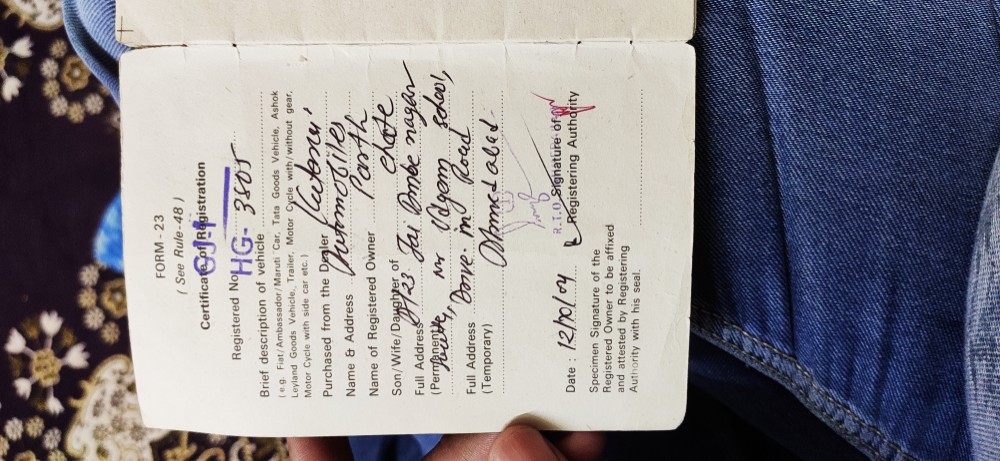 FORM - 23
( See Rule-48 )
Certificate of Registration
GJ-1
Registered No. HG- 3805
Brief description of vehicle
( e.g. Fiat/Ambassador/Maruti Car, Tata Goods Vehicle, Ashok
Leyland Goods Vehicle, Trailer, Motor Cycle with/without gear,
Motor Cycle with side car etc. )
Purchased from the Dealer
Name & Address Automobiles
Name of Registered Owner Parth
Son/Wife/Daughter of
Full Address Jai Ambe nagar
(Permanent) Nr school,
Drive in Road
Full Address Ahmedabad.
(Temporary)
Date : 12/10/04
R.T.O Signature of
Registering Authority
Specimen Signature of the
Registered Owner to be affixed
and attested by Registering
Authority with his seal.